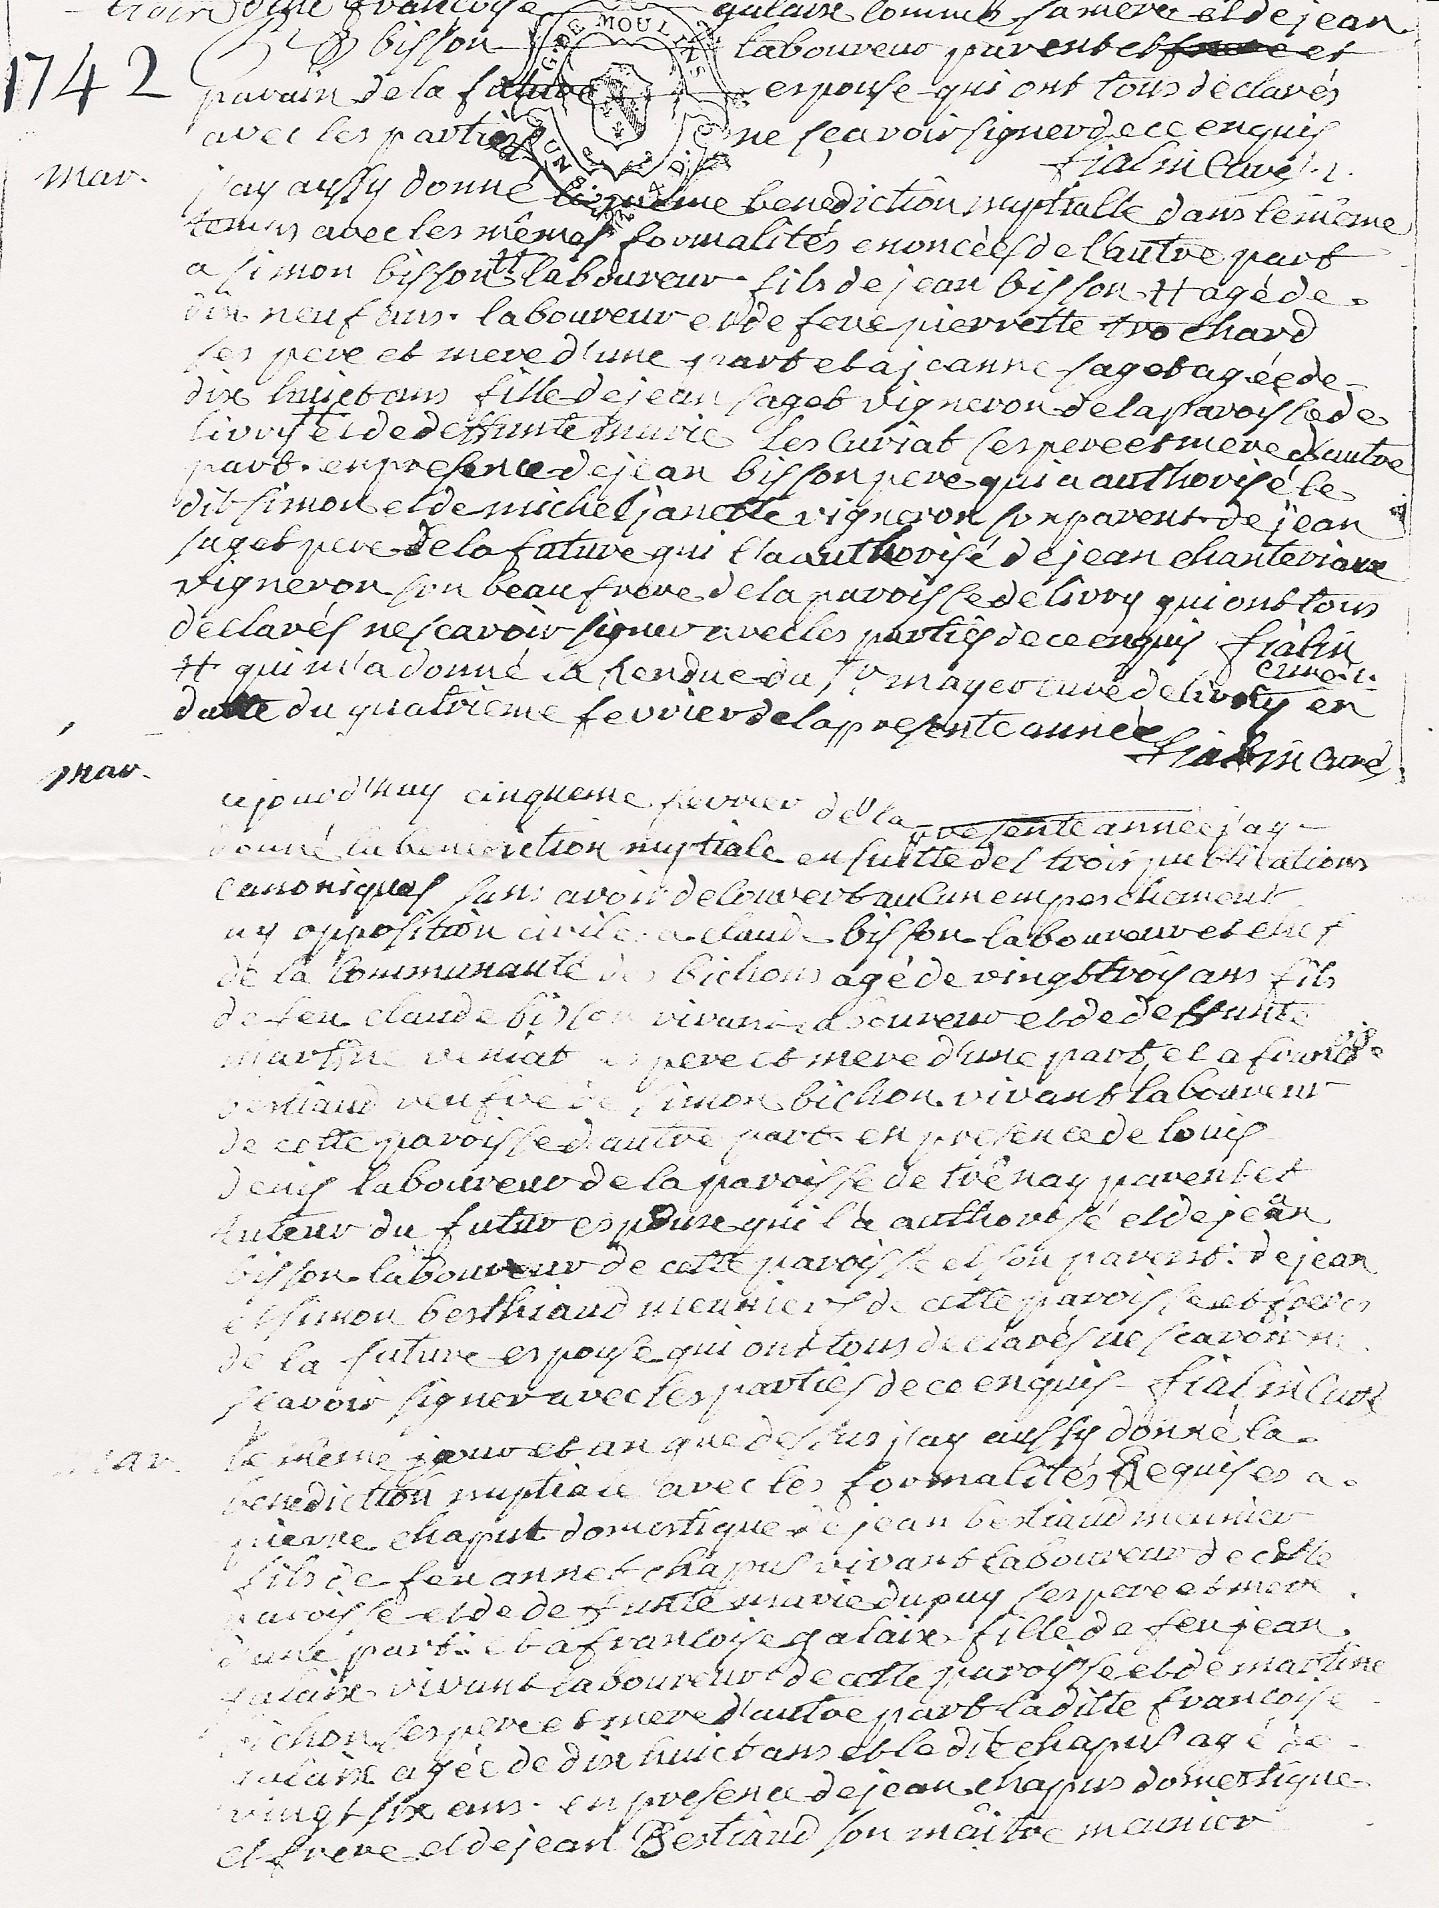 françoise galaix comme sa mere et de jean
1742
bisson laboureur parent et frere et
parain de la future espouse qui ont tous declarés
avec les parties ne sçavoir signer de ce enquis
fialin curé
mar.
j'ay aussy donné la même benediction nuptialle dans le même
tems avec les mêmes formalités enoncées de l'autre part
a simon bisson laboureur fils de jean bisson # agé de
dix neuf ans laboureur et de feue pierrette trochard
ses pere et mere d'une part et a jeanne saget agée de
dix huict ans fille de jean saget vigneron de la paroisse de
livry # et de deffunte marie lescuriat ses pere et mere d'autre
part. en presence de jean bisson pere qui a authorisé le
dit simon et de michel janette vigneron son parent de jean
saget pere de la future qui l'a authorisé de jean chanteriaux
vigneron son beau frere de la paroisse de livry qui ont tous
declarés ne scavoir signer avec les parties de ce enquis fialin
curé
# qui m'a donné la Rendue du Sr mayeot curé de livry en
datte du quatrieme fevrier de la presente année
fialin curé
mar.
cejourd'huy cinquieme fevrier de la presente année j'ay
donné la benediction nuptiale ensuitte des trois publications
canoniques sans avoir decouvert aucun empeschement
ny opposition civile a claude bisson laboureur et chef
de la communauté des bichons agé de vingt trois ans fils
de feu claude bisson vivant laboureur et de deffunte
martine deniat ses pere et mere d'une part, et a françoise
bertiaud veufve de simon bichon vivant laboureur
de cette paroisse d'autre part en presence de louis
denis laboureur de la paroisse de trênay parent et
tuteur du futur espoux qui l'a authorisé et de jean
bisson laboureur de cette paroisse et son parent. de jean
et simon berthiaud meuniers de cette paroisse et freres
de la future espouse qui ont tous declarés ne scavoir ne
scavoir signer avec les parties de ce enquis fialin curé
mar.
le même jour et an que dessus j'ay aussy donné la
benediction nuptiale avec les formalités Requises a
pierre chaput domestique de jean bertiaud meunier
fils de feu annet chapus vivant laboureur de cette
paroisse et de deffunte marie dupuy ses pere et mere
d'une part. et a françoise galaix fille de feu jean
galaix vivant laboureur de cette paroisse et de martine
bichon ses pere et mere d'autre part ladite françoise
galaix agée de dix huict ans et le dit chapus agé de
vingt six ans. en presence de jean chapus domestique
et frere et de jean Bertiaud son maître meunier